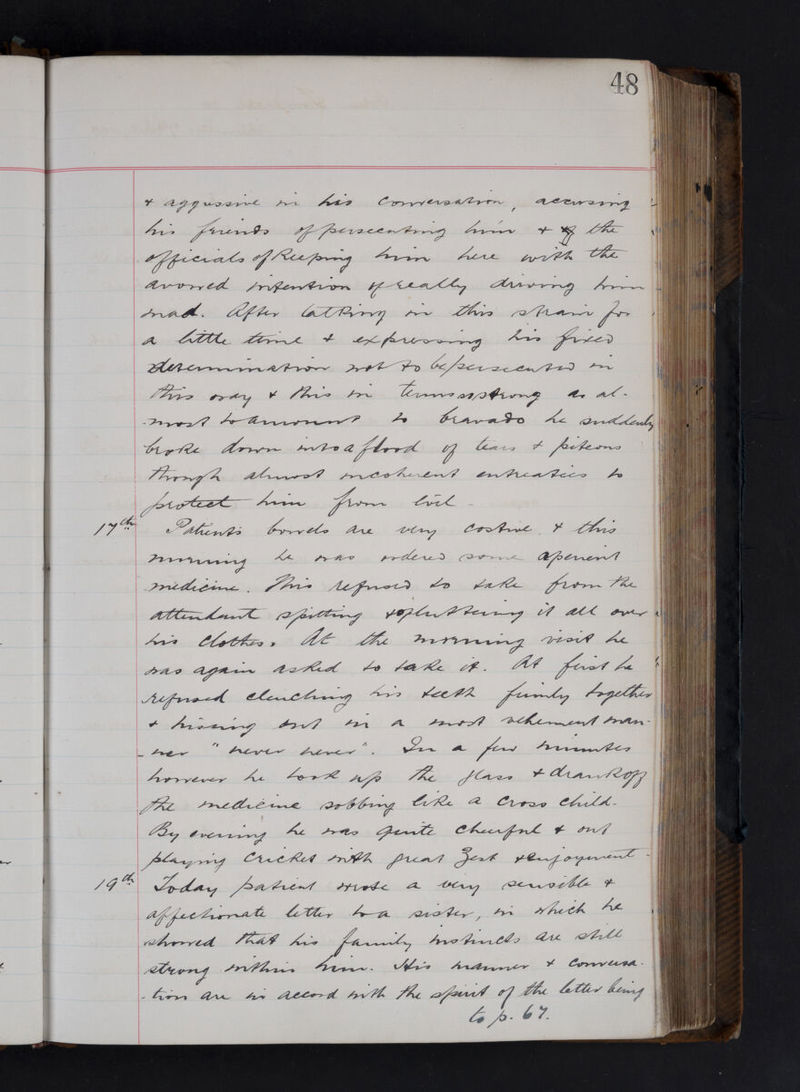 48
& aggressive in his conversation, accusing
his friends of persecuting him & of the
officials of keeping him here with the
avowed intention of really driving him
mad. After talking in this strain for
a little time & expressing his fixed
determination not to be persecuted in
this way & this in terms so strong as al-
-most to amount to bravado he suddenly
broke down into a flood of tears & piteous
though almost incoherent entreaties to
protect him from evil.
17th Patients bowels are very costive & this
morning he was ordered some aperient
medicine. This refused to take from the
attendant spitting & spluttering it all over
his clothes. At the morning visit he
was again asked to take it. At first he
refused clenching his teeth firmly together
& hissing out in a most vehement man-
-ner "never never". In a few minutes
however he took up the glass & drank off
the medicine sobbing like a cross child.
By evening he was quite cheerful & out
playing cricket with great zest & enjoyment.
19th Today patient wrote a very sensible &
affectionate letter to a sister, in which he
showed that his family instincts are still
strong within him. His manner & conversa-
-tion are in accord with the spirit of the letter being
to p. 67.